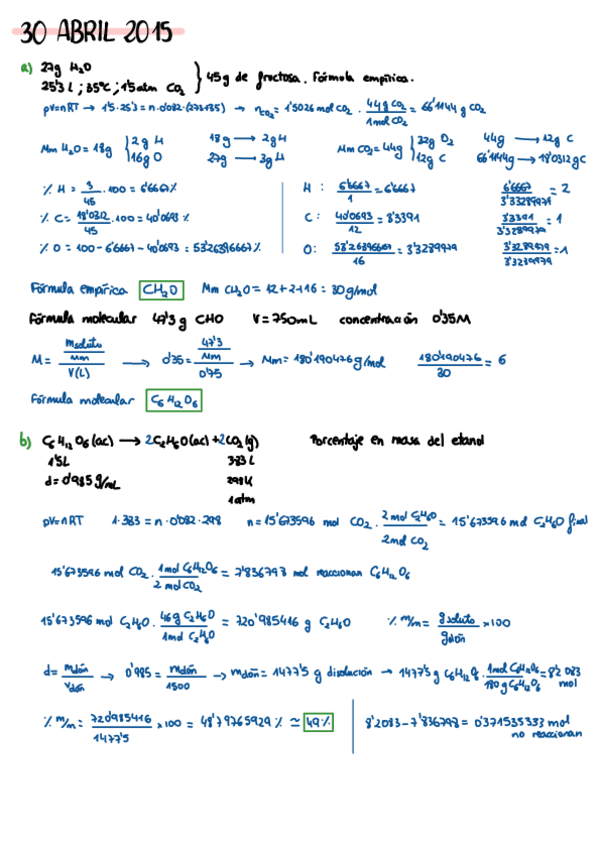 30 ABRIL 2015
a) 27g H2O
25'3 L ; 35ºC ; 1'5 atm CO2 } 45 g de fructosa. Fórmula empírica.
pV=nRT → 1'5·25'3 = n·0'082·(273+35) → nCO2 = 1'5026 mol CO2 · 44g CO2 / 1mol CO2 = 66'1144 g CO2
Mm H2O = 18g { 2g H 18g → 2g H Mm CO2 = 44g { 32g O2 44g → 12g C
16g O 27g → 3g H 12g C 66'1144g → 18'0312g C
% H = 3/45 · 100 = 6'6667% H: 6'6667/1 = 6'6667 6'6667/3'33289979 = 2
% C = 18'0312/45 · 100 = 40'0693 % C: 40'0693/12 = 3'3391 3'3391/3'33289979 = 1
% O = 100 - 6'6667 - 40'0693 = 53'26396667 % O: 53'26396667/16 = 3'3289979 3'3289979/3'3289979 = 1
Fórmula empírica CH2O Mm CH2O = 12+2+16 = 30g/mol
Fórmula molecular 47'3 g CHO V = 750mL concentración 0'35M
M = (msoluto/Mm)/V(L) → 0'35 = (47'3/Mm)/0'75 → Mm = 180'190476 g/mol 180'190476/30 = 6
Fórmula molecular C6H12O6
b) C6H12O6 (ac) → 2C2H6O(ac) + 2CO2(g) Porcentaje en masa del etanol
1'5L 383 L
d = 0'985 g/mL 298K
1 atm
pV=nRT 1·383 = n·0'082·298 n = 15'673596 mol CO2 · 2 mol C2H6O / 2mol CO2 = 15'673596 mol C2H6O final
15'673596 mol CO2 · 1mol C6H12O6 / 2 mol CO2 = 7'836798 mol reaccionan C6H12O6
15'673596 mol C2H6O · 46g C2H6O / 1mol C2H6O = 720'985416 g C2H6O % m/m = gsoluto/gdón ×100
d = mdón/Vdón → 0'985 = mdón/1500 → mdón = 1477'5 g disolución → 1477'5 g C6H12O6 · 1mol C6H12O6 / 180g C6H12O6 = 8'2083 mol
% m/m = 720'985416/1477'5 ×100 = 48'79765929 % ≃ 49% 8'2083 - 7'836798 = 0'371535333 mol
no reaccionan